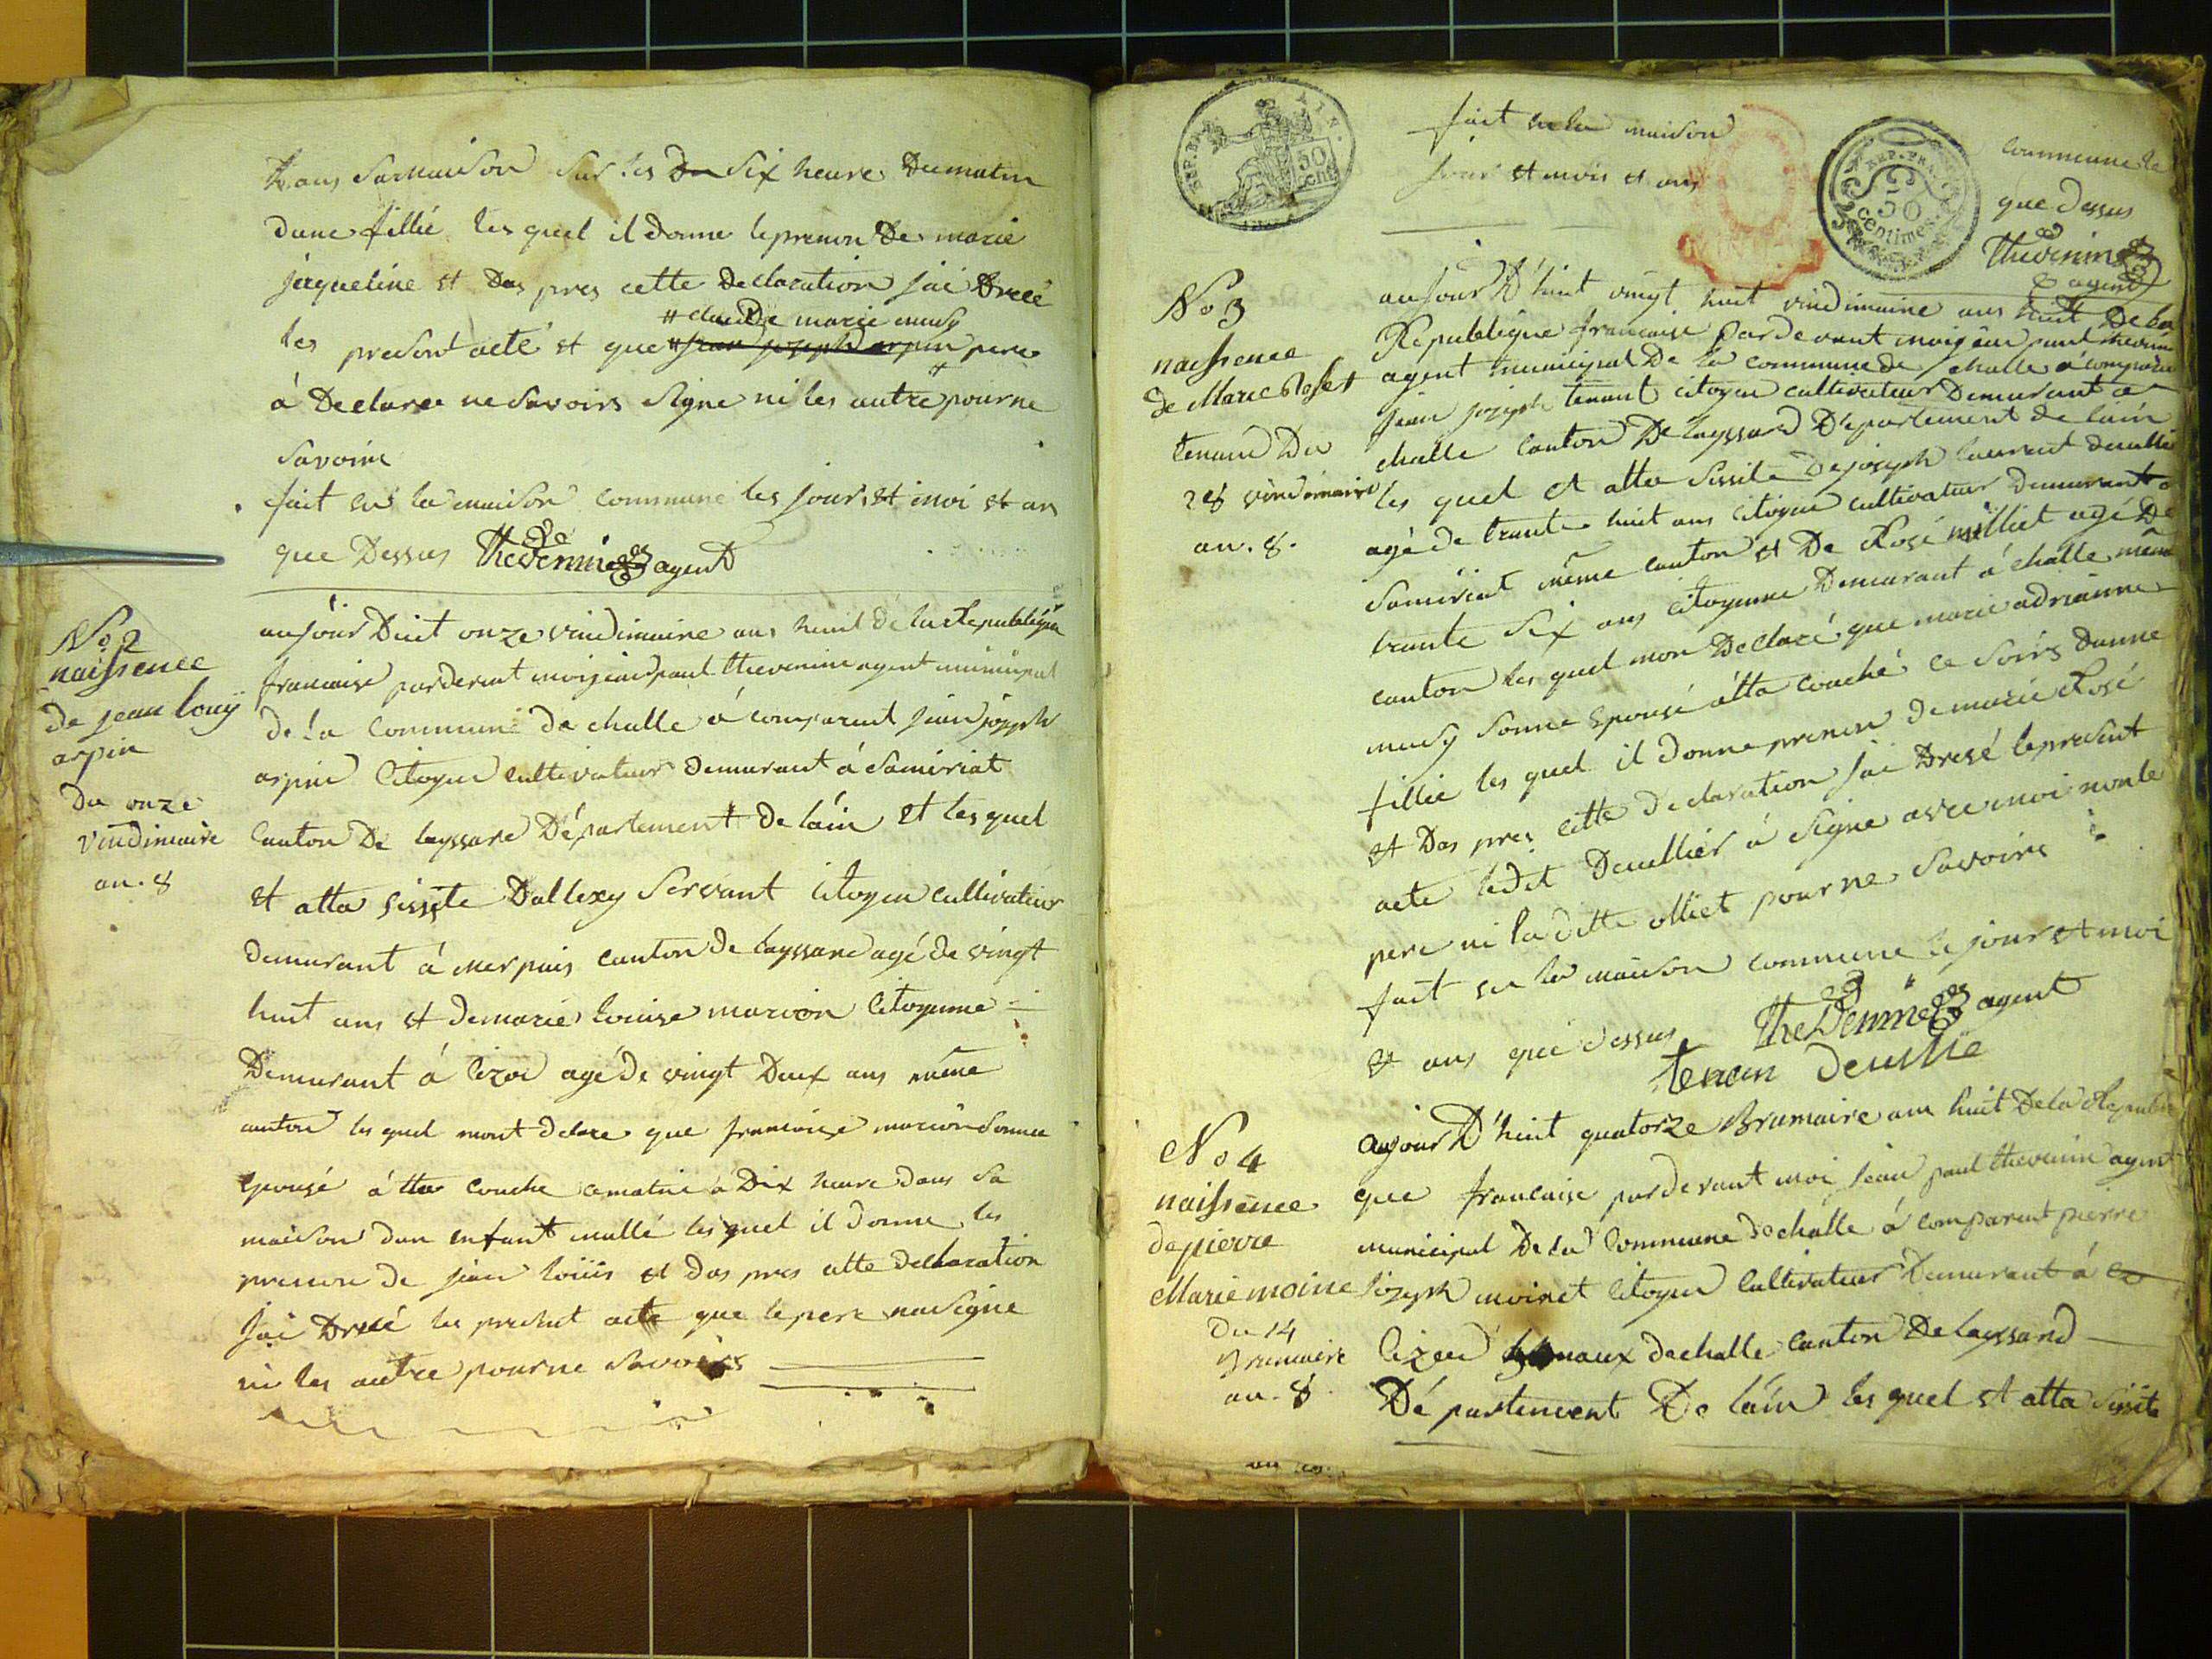 dans sa maison sur les six heure du matin
dune fillié les quel il donne le prenon de marie
jaqueline et das pres cette declaration jai drecé
# claudde marie musy
les presont acté et que # jean joseph arpin pere
à declarer ne savoirs signe ni les autre pour ne
savoire
fait en la maison commune les jour et moi et an
que dessus thevenin agent
No 2
naissence
de jean louÿ
arpin
du onze
vindimaire
an . 8
aujour duit onze vindimaire ans huit de la Republique
francaise pardevent moi jean paul thevenin agent municipal
de la commune de challe à comparut jean joseph
arpin citoyen cultivateur demurant à samiriat
canton de leyssard département de láin et les quel
et atta sissite dallexy servant citoyen cultivateur
demurant à merpuis canton de leyssard agé de vingt
huit ans et de marie louise marion citoyenne
demurant à lizod agé de vingt deux ans même
canton les quel mont delare que francoise marion sonne
epousé à tta couche ce matin à dix heure dans sa
maison dun enfant mallé les quel il donne les
prenon de jean louiis et das pres cette declaration
jai drecé les president acte que le pere na signe
ni les autre pour ne savoirs
fait en la maison
commune le
jour et mois et ans
que dessus
thevenin
agent
REP. FRA
50
centimes
No 3
naissence
de Marie Rose +
tenand du
28 vindimaire
an . 8 .
aujour d'huit vingt huit vindimaire ans huit de la
Republique francaise pardevant moi jean paul thevenin
agent municipal de la commune de challe à comparu
jean joseph tenant citoyen cultivateur demurant a
challe canton de leyssard département de láin
les quel et atta sissite de joseph laurent deullié
agé de trante huit ans citoyen cultivateur demurant a
samiriat même canton et de Rose milliet agé de
trante six ans citoyenne demurant à challe même
canton les quel mon declaré que marie adrianne
musy sonne epousé átta couché ce soirs dunne
fillié les quel il donne prenon de marie Rosé
et das pres cette declaration jai dresé le present
acte ledit deullier à signe avec moi nonle
pere ni la ditte olliet pour ne savoirs
fait en la maison commune le jour et moi
et ans que dessus thevenin agent
tenan deullie
No 4
naissence
de pierre
Marie moine
du 14
Brumaire
an . 8
aujour d'huit quatorze Brumaire an huit de la Republi
que francaise pardevant moi jean paul thevenin agent
municipal de la commune de challe à comparut pierre
joseph moinet citoyen cultivateur demurant á
lizod de challe canton de leyssard
département de láin les quel et atta sissite